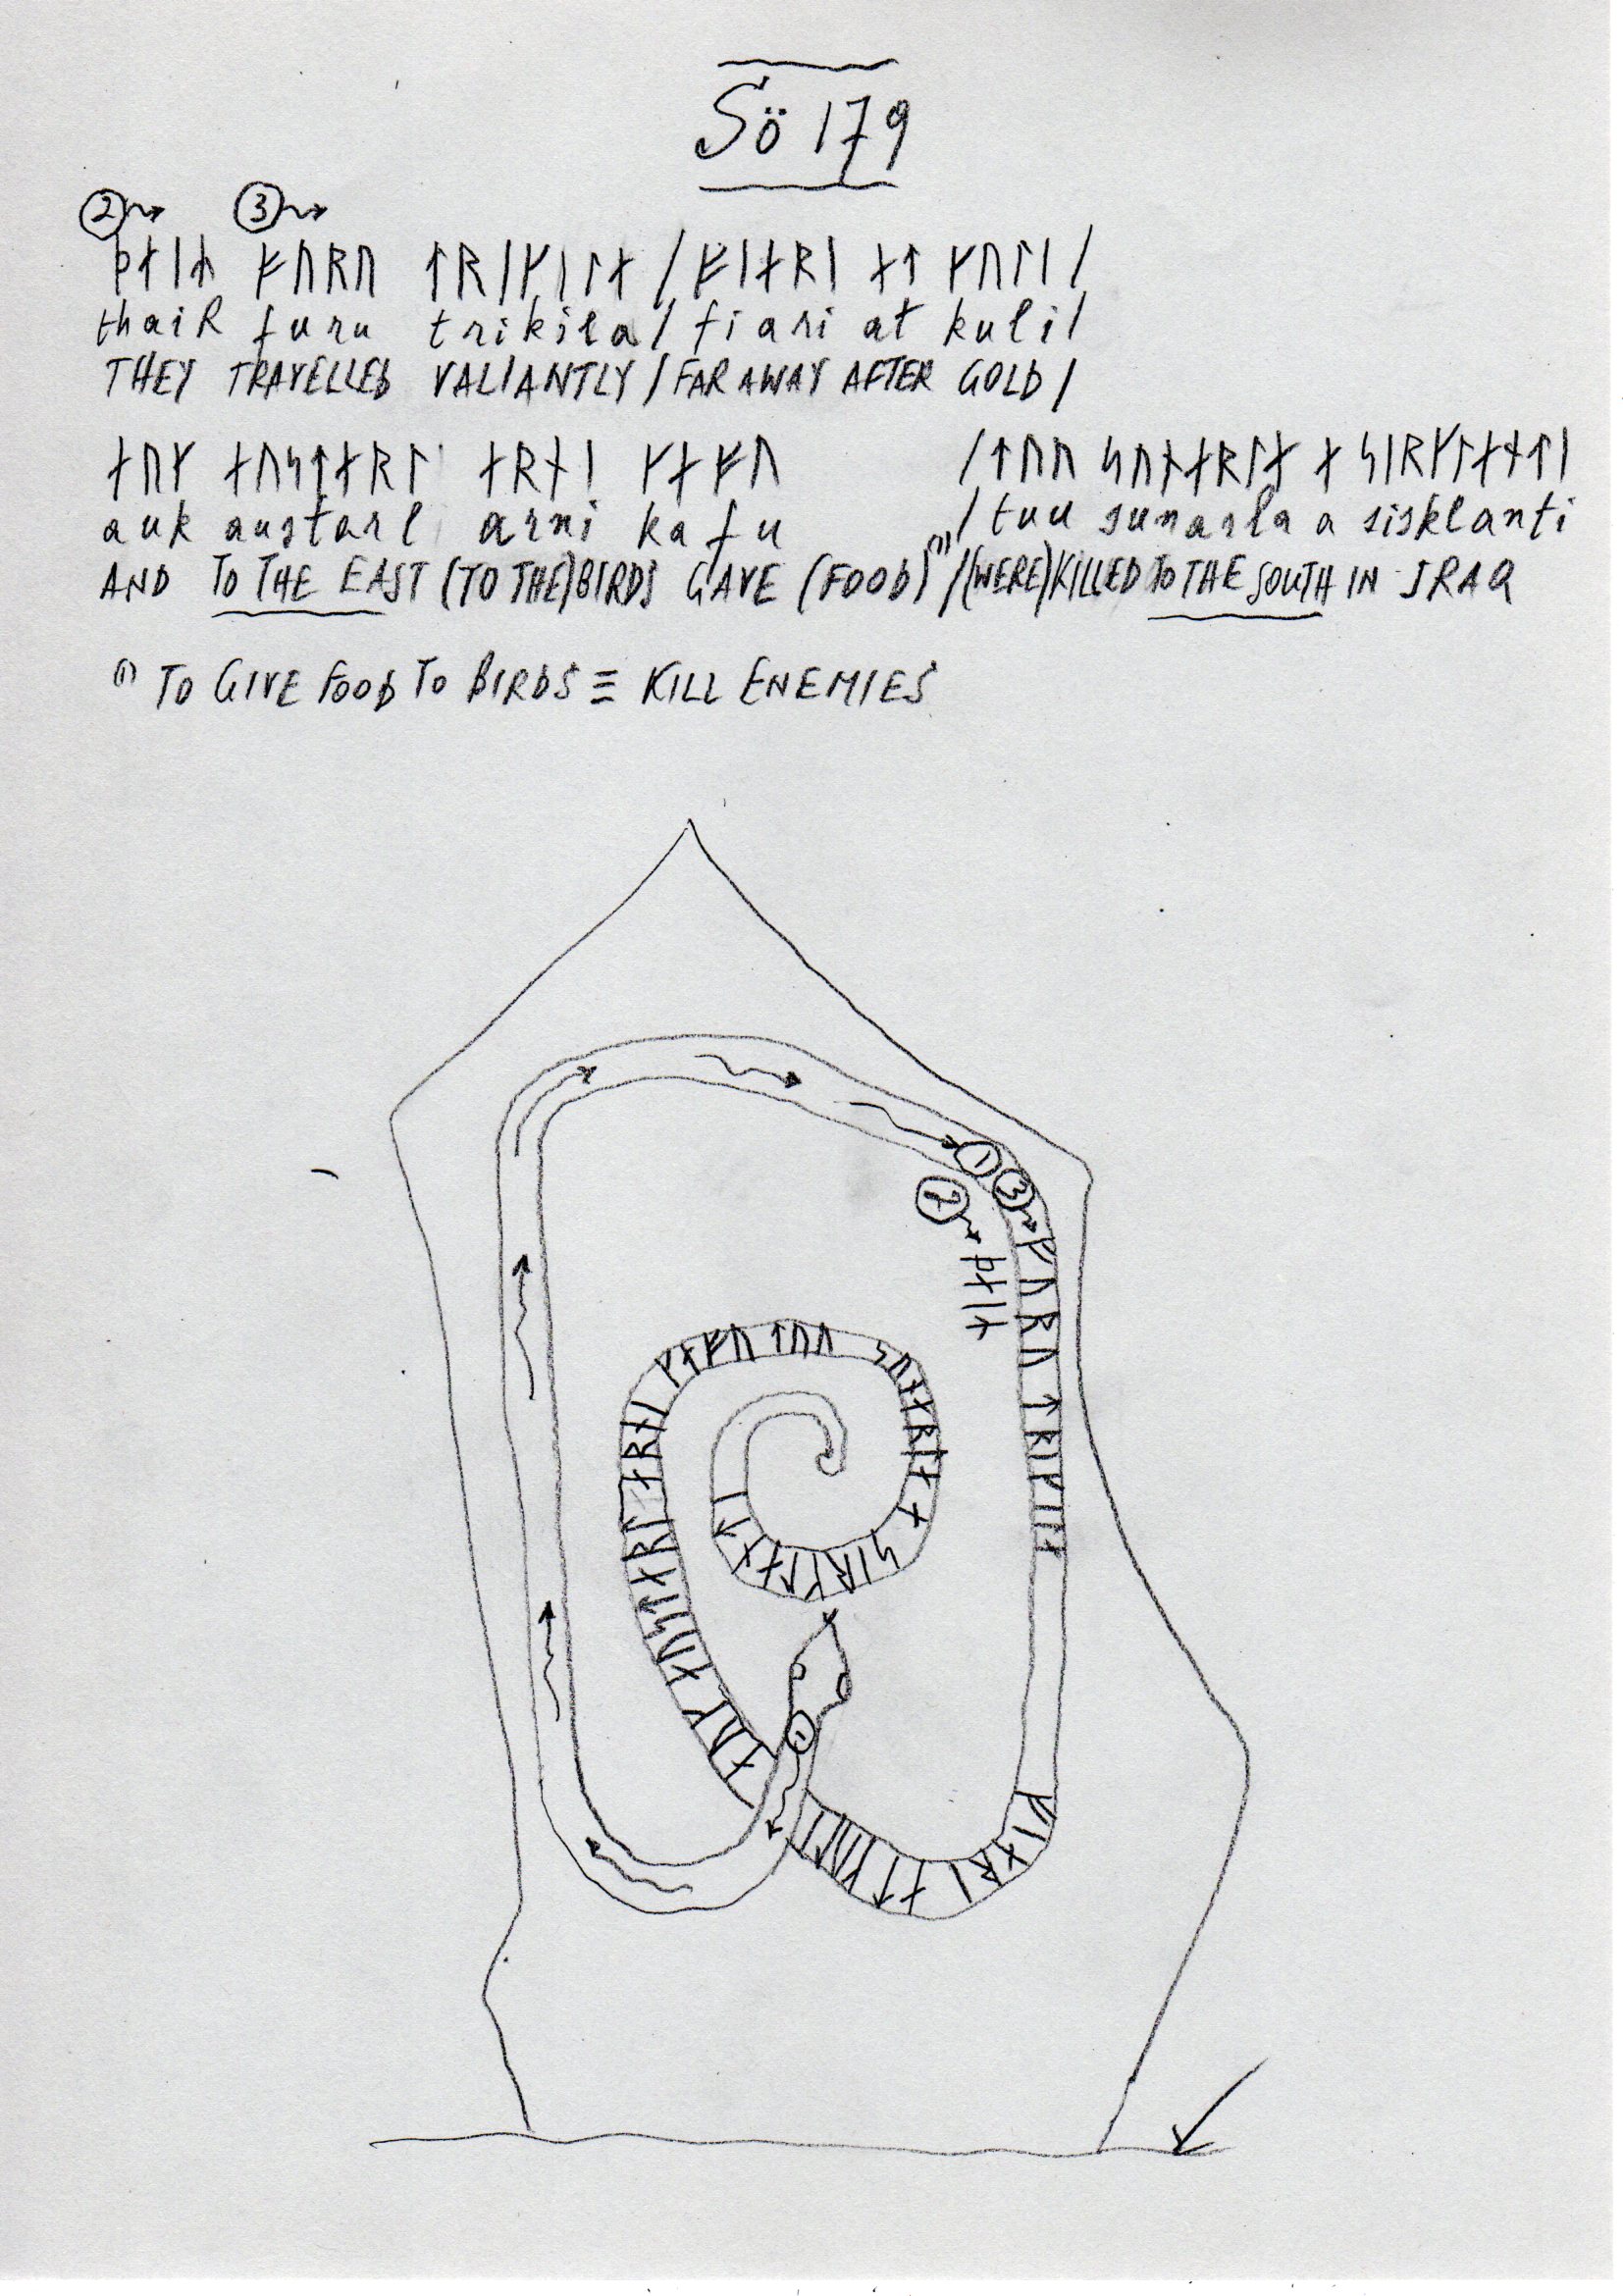 Sö 179
② ③
ᚦᛅᛁᛦ ᚠᚢᚱᚢ ᛏᚱᛁᚴᛁᛚᛅ / ᚠᛁᛅᚱᛁ ᛅᛏ ᚴᚢᛚᛁ /
thaiR furu trikila / fiari at kuli /
THEY TRAVELLED VALIANTLY / FAR AWAY AFTER GOLD /
ᛅᚢᚴ ᛅᚢᛋᛏᛅᚱᛚ ᛅᚱᚾᛁ ᚴᛅᚠᚢ / ᛏᚢᚢ ᛋᚢᚾᛅᚱᛚᛅ ᛅ ᛋᛁᚱᚴᛚᛅᚾᛏᛁ
auk austarl arni kafu / tuu sunarla a sirklanti
AND TO THE EAST (TO THE) BIRDS GAVE (FOOD) (1) / (WERE) KILLED TO THE SOUTH IN IRAQ
(1) TO GIVE FOOD TO BIRDS ≡ KILL ENEMIES
①
③
②
ᚦᛅᛁᛦ
ᚠᚢᚱᚢ ᛏᚱᛁᚴᛁᛚᛅ
ᚠᛁᛅᚱᛁ ᛅᛏ ᚴᚢᛚᛁ
①
ᛅᚢᚴ ᛅᚢᛋᛏᛅᚱᛚ ᛅᚱᚾᛁ ᚴᛅᚠᚢ ᛏᚢᚢ ᛋᚢᚾᛅᚱᛚᛅ ᛅ ᛋᛁᚱᚴᛚᛅᚾᛏᛁ